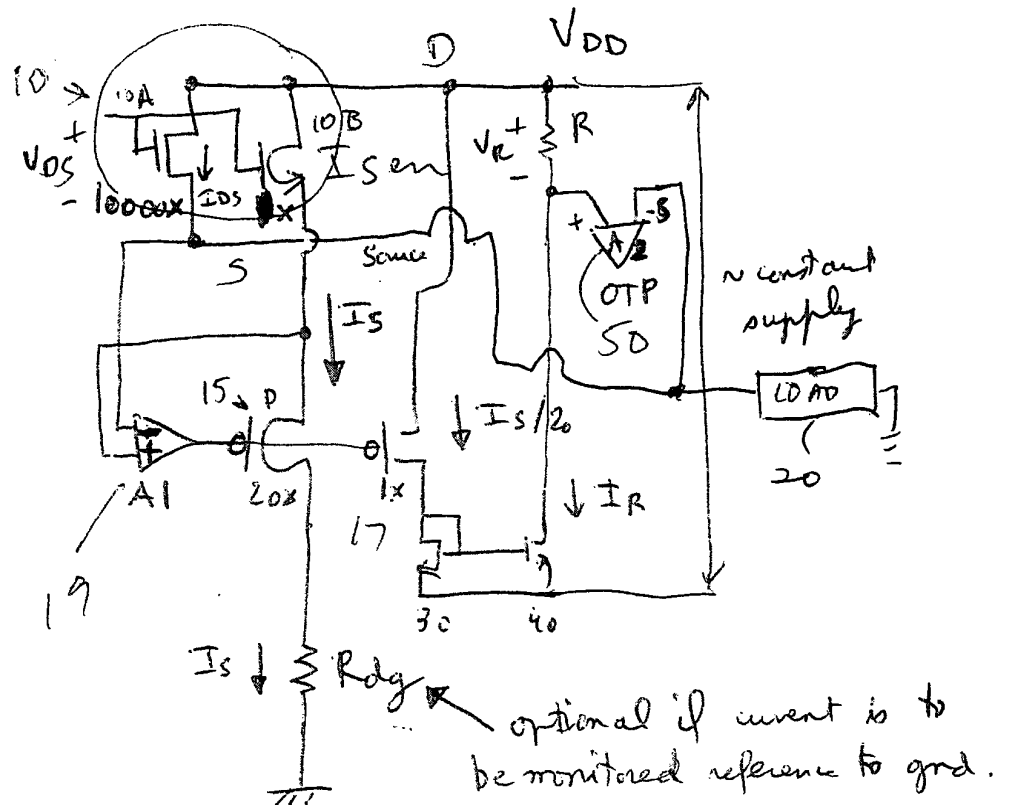 D
V_DD
10
10A
10B
+
V_DS
-
10000x
I_DS
x
I Sen
V_R
+
-
R
+
A2
-S
OTP
50
~ constant
supply
S
Source
I_S
LOAD
20
15
P
I_S/20
-
+
A1
20x
1x
17
I_R
19
30
40
I_S
Rdg
...
optional if current is to
be monitored reference to gnd.